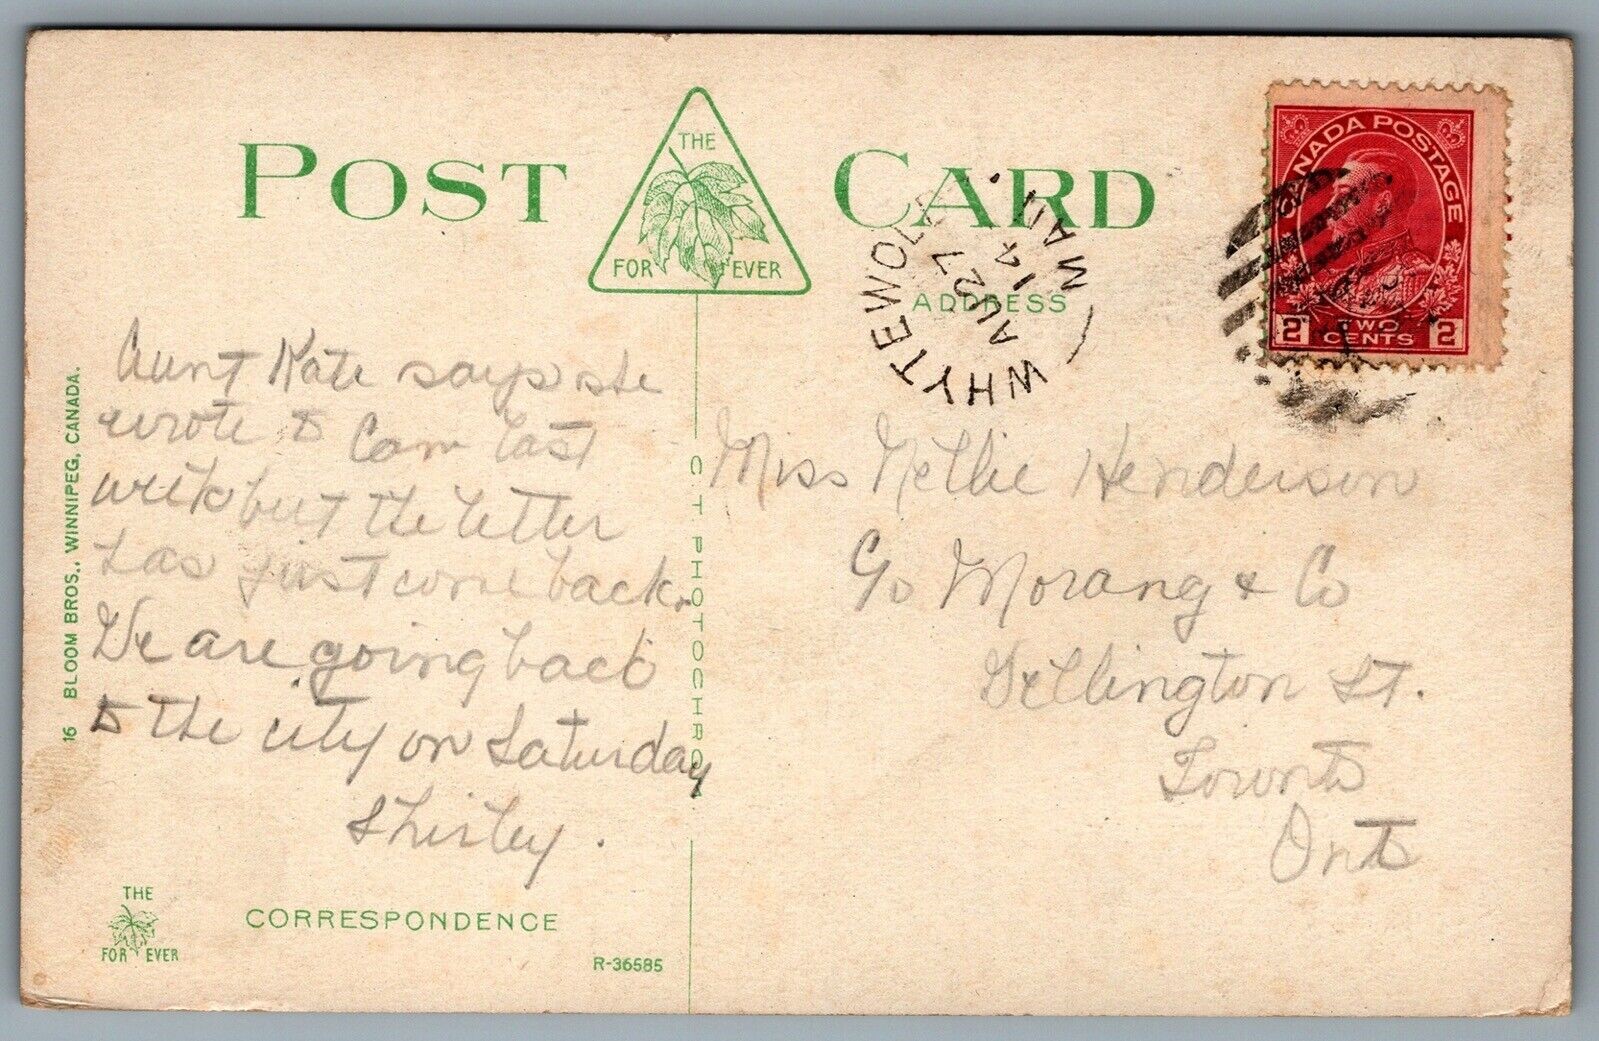 POST CARD
THE
FOR EVER
ADDRESS
WHYTEWOLD
AU 27
14
MAN
CANADA POSTAGE
2 TWO CENTS 2
Aunt Kate says she
wrote to Cam last
week but the letter
has just come back.
We are going back
to the city on Saturday
Shirley.
Miss Nellie Henderson
c/o Morang & Co
Wellington St.
Toronto
Ont
16 BLOOM BROS., WINNIPEG, CANADA.
C. T. PHOTOCHROM
THE
FOR EVER
CORRESPONDENCE
R-36585